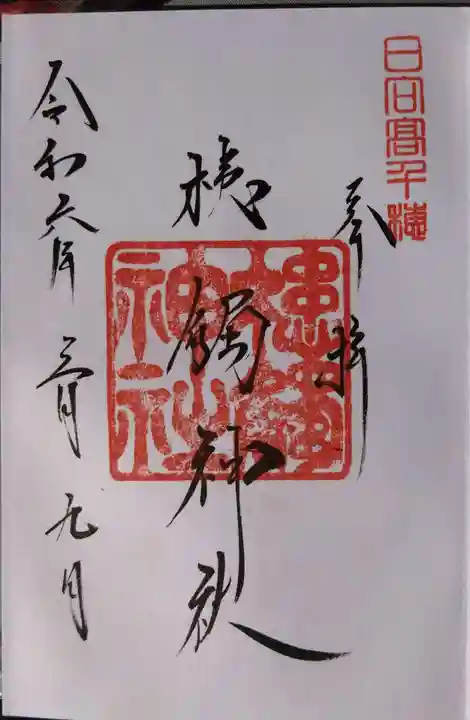 日向髙千穂
奉拝
槵觸神社
槵觸神社
令和六年 三月 九日